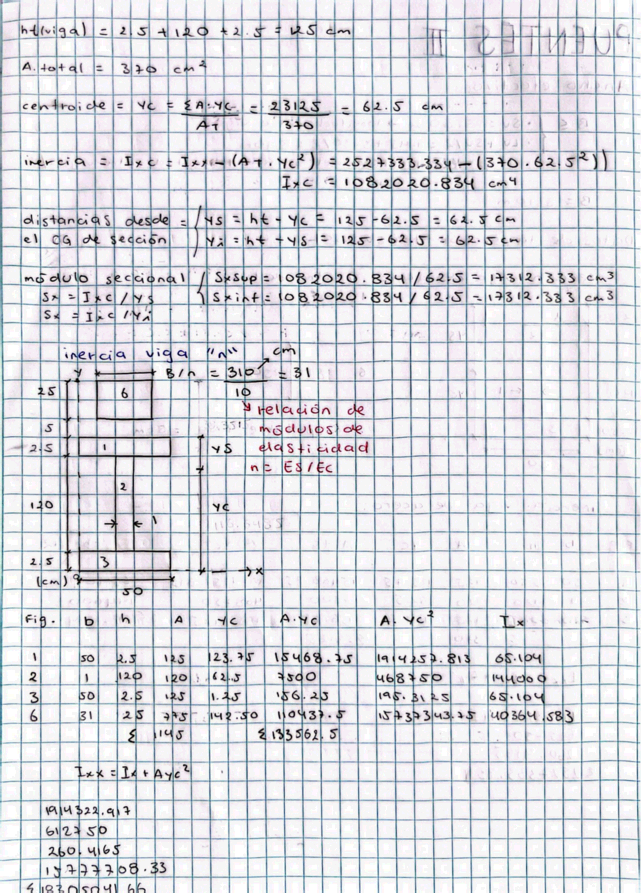 ht(viga) = 2.5 + 120 + 2.5 = 125 cm
A. total = 370 cm²
centroide = Yc = ΣA·Yc / AT = 23125 / 370 = 62.5 cm
inercia = Ixc = Ixx - (AT · Yc²) = 2527333.334 - (370 · 62.5²))
Ixc = 1082020.834 cm4
distancias desde = { Ys = ht - Yc = 125 - 62.5 = 62.5 cm
el CG de sección { Yi = ht - Ys = 125 - 62.5 = 62.5 cm
módulo seccional { Sxsup = 1082020.834 / 62.5 = 17312.333 cm3
Sx = Ixc / Ys { Sxinf = 1082020.834 / 62.5 = 17312.333 cm3
Sx = Ixc / Yi
inercia viga "n" cm
Y B/n = 310 / 10 = 31
25 6
relación de
5 módulos de
2.5 1 Ys elasticidad
n = Es/Ec
2
120 Yc
1
2.5 3
(cm) x
50
Fig. b h A Yc A·Yc A·Yc² Ix
1 50 2.5 125 123.75 15468.75 1914257.813 65.104
2 1 120 120 62.5 7500 468750 144000
3 50 2.5 125 1.25 156.25 195.3125 65.104
6 31 25 775 142.50 110437.5 15737343.75 40364.583
Σ 1145 Σ 133562.5
Ixx = Ix + Ayc²
1914322.917
612750
260.4165
15777708.33
Σ 18305041.66